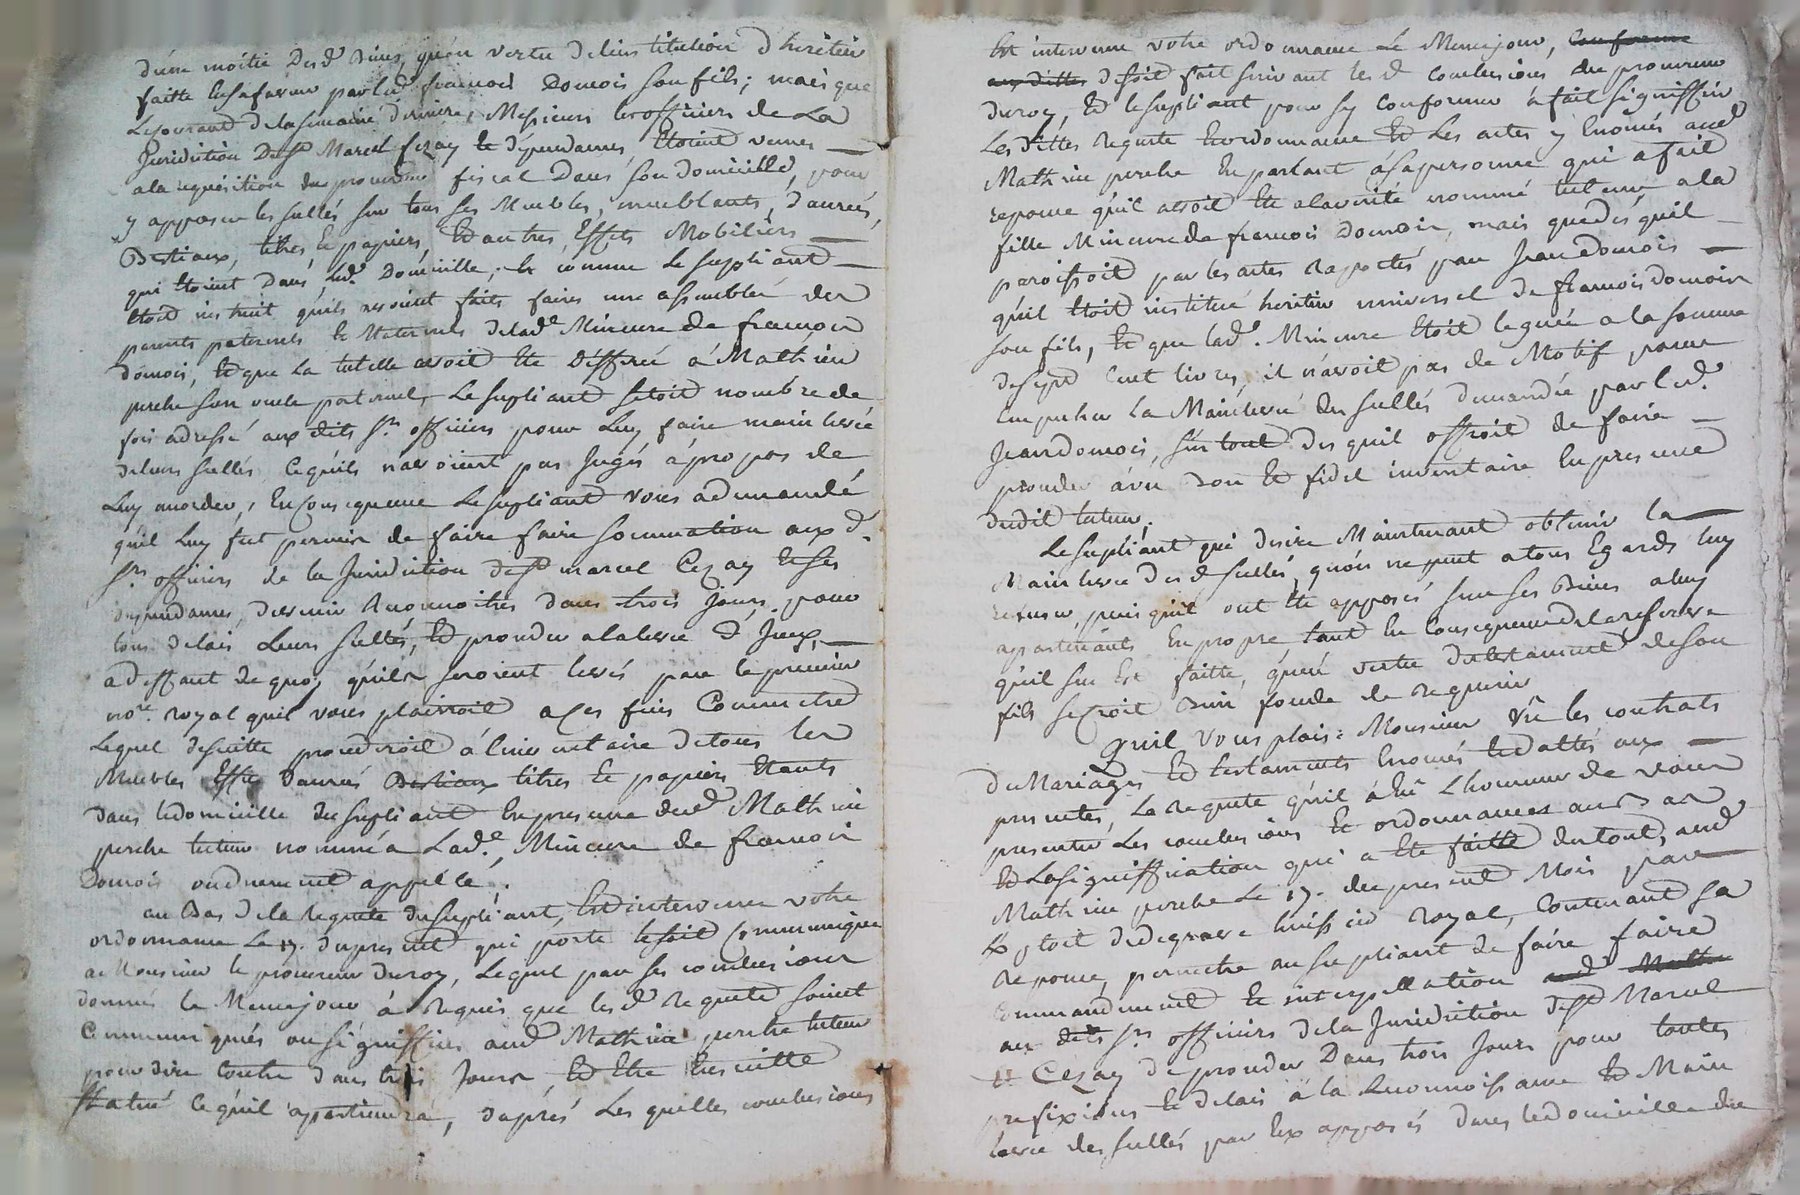 d'une moitié desd. Biens, qu'en vertu de l'institution d'heritier
faitte en sa faveur par led. francois Domois son fils; mais que
le courant de la semaine derniere, Messieurs les officiers de La
Juridiction de St Marcel fezay et dependances étoient venus
a la requisition du procureur fiscal dans son domicille, pour
y apposer les scellés sur tous ses Meubles, meublants, danrées,
Bestiaux, titres, et papiers, et autres, Effets Mobiliers
qui étoient dans led. Domicille; et comme le supliant
étoit instruit qu'ils avoient faits faire une assemblée des
parents paternels et Maternels de lad.e Mineure de francois
domois, et que la tutelle avoit été défferée à Mathieu
perche son oncle paternel, Le supliant s'étoit nombre de
fois adressé aux dits Srs officiers pour Luy faire main levée
de leurs scellés, ce qu'ils n'avoient pas jugés à propos de
Luy accorder, en consequence Le supliant vous a demandé
qu'il Luy fut permis de faire faire sommation aux d.
Srs officiers de la Juridiction de St marcel Cezay et ses
dependances, de venir reconnoitre dans trois jours pour
tous delais Leurs scellés, et proceder a la levée d'Iceux,
a deffaut de quoy qu'ils seroient levés par le premier
no.re royal qu'il vous plairroit a ces fins Commettre
Lequel de suitte procederoit à l'inventaire de tous les
Meubles Effets danrées Bestiaux titres et papiers étants
dans le domicille du supliant en presence dud. Mathieu
perche tuteur nommé a Lad.e Mineure de francois
Domois ou duement appellé.
au Bas de la requete du supliant, est intervenue votre
ordonnance Le 17. du present qui porte le soit Communiqué
a Monsieur le procureur du roy, Lequel par ses conclusions
données le Meme jour à requis que les d. requete soient
Communiqués ou signiffiées aud. Mathieu perche tuteur
pour dire contre dans trois jours, et etre ensuitte
statué ce qu'il apartiendra, d'aprés Les quelles conclusions
Est intervenue votre ordonnance Le Meme jour,
de soit fait suivant les d. conclusions du procureur
du roy, et le supliant pour s'y conformer à fait signiffier
Les dittes requete et ordonnance et les actes y Enoncés aud.
Mathieu perche en parlant à sa personne qui a fait
reponse qu'il avoit été a la verité nommé tuteur a la
fille Mineure de francois domois, mais que dés qu'il
paroissoit par les actes raportés par Jean domois
qu'il étoit institué heritier universel de francois domois
son fils, et que lad. Mineure étoit leguée a la somme
de sept cent livres, il n'avoit pas de Motif pour
empecher la Mainlevée des scellés demandée par led.
Jean domois, sur tout des qu'il offroit de faire
proceder à un Bon et fidel inventaire En presence
dudit tuteur.
Le supliant qui desire Maintenant obtenir la
Main levée des d. scellés, qu'on ne peut a tous Egards luy
refuser, puis qu'ils ont été apposés sur ses Biens a luy
apartenants en propre, tant en Consequence de la reserve
qu'il s'en est faitte, qu'en vertu du testament de son
fils se croit Bien fondé de requerir
Qu'il vous plaise Monsieur Vû les contrats
de Mariages et testaments énoncés et dattés aux
presentes, La requete qu'il à Eû L'honneur de vous
presenter Les conclusions et ordonnances au Bas
et La signiffication qui a été faitte du tout, aud.
Mathieu perche Le 17. du present Mois par
Exploit de degrave huissier royal, Contenant sa
reponse, permettre au supliant de faire faire
commandement et interpellation
aux dits Srs officiers de la Juridiction de St Marcel
Cezay de proceder Dans trois jours pour toutes
prefixions et delais à la reconnoissance et Main
levée des scellés par Eux apposés dans le domicille du